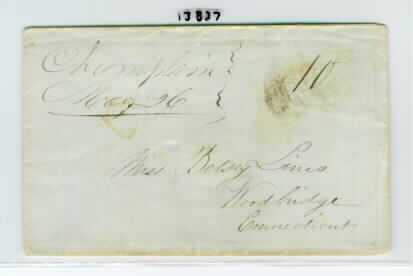 13837
Champlain
May 26
10
Miss Betsey Lines
Woodbridge
Connecticut